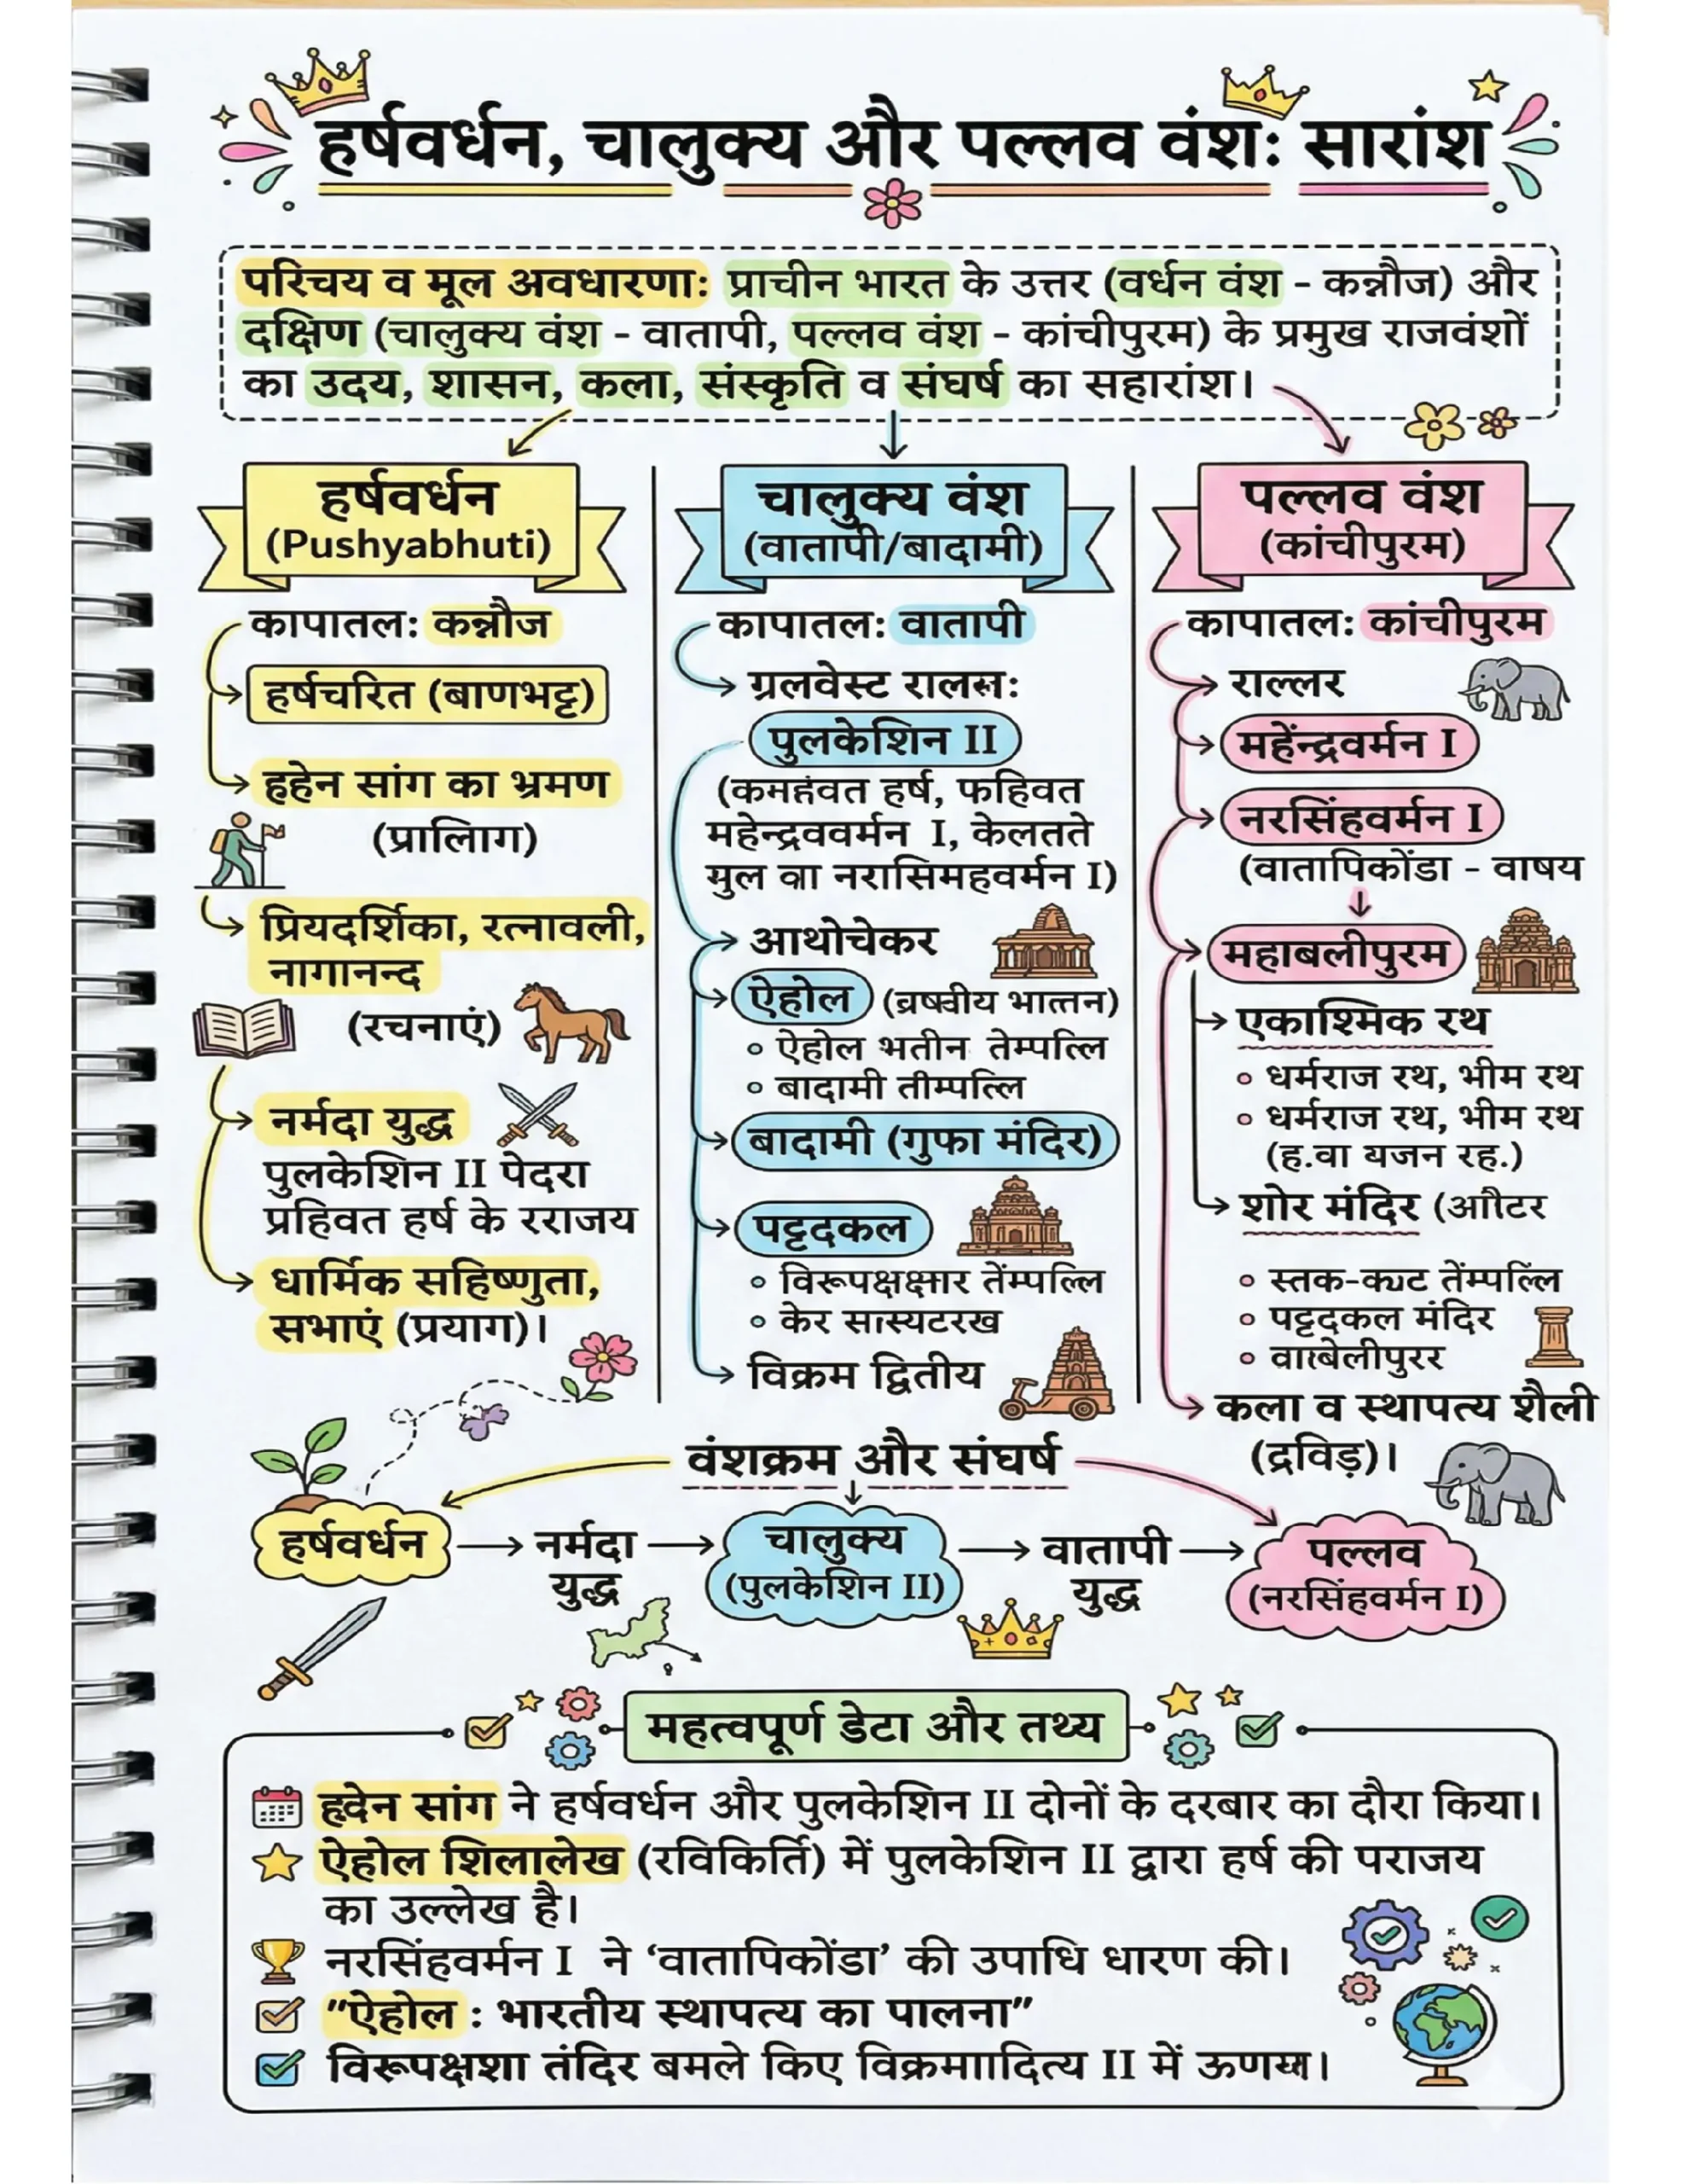 हर्षवर्धन, चालुक्य और पल्लव वंश: सारांश
परिचय व मूल अवधारणा: प्राचीन भारत के उत्तर (वर्धन वंश - कन्नौज) और
दक्षिण (चालुक्य वंश - वातापी, पल्लव वंश - कांचीपुरम) के प्रमुख राजवंशों
का उदय, शासन, कला, संस्कृति व संघर्ष का सहारांश।
हर्षवर्धन
(Pushyabhuti)
कापातल: कन्नौज
हर्षचरित (बाणभट्ट)
हहेन सांग का भ्रमण
(प्रालिाग)
प्रियदर्शिका, रत्नावली,
नागानन्द
(रचनाएं)
नर्मदा युद्ध
पुलकेशिन II पेदरा
प्रहिवत हर्ष के रराजय
धार्मिक सहिष्णुता,
सभाएं (प्रयाग)।
चालुक्य वंश
(वातापी/बादामी)
कापातल: वातापी
ग्रलवेस्ट
पुलकेशिन II
(कमहंवत हर्ष, फहिवत
महेन्द्रववर्मन I, केलतते
मुल वा नरासिमहवर्मन I)
आथोचेकर
ऐहोल
ऐहोल भतीन तेम्पत्लि
बादामी तीम्पत्लि
बादामी (गुफा मंदिर)
पट्टदकल
विरूपक्षक्षार तेंम्पत्लि
केर सास्यटरख
विक्रम द्वितीय
पल्लव वंश
(कांचीपुरम)
कापातल: कांचीपुरम
राल्लर
महेंन्द्रवर्मन I
नरसिंहवर्मन I
(वातापिकोंडा - वाषय
महाबलीपुरम
एकाश्मिक रथ
धर्मराज रथ, भीम रथ
धर्मराज रथ, भीम रथ
(ह.वा यजन रह.)
शोर मंदिर (आौटर
स्तक-क्यट तेंम्पत्लि
पट्टदकल मंदिर
वाबेलीपुरर
कला व स्थापत्य शैली
(द्रविड़)।
वंशक्रम और संघर्ष
हर्षवर्धन
नर्मदा
युद्ध
चालुक्य
(पुलकेशिन II)
वातापी
युद्ध
पल्लव
(नरसिंहवर्मन I)
महत्वपूर्ण डेटा और तथ्य
ह्वेन सांग ने हर्षवर्धन और पुलकेशिन II दोनों के दरबार का दौरा किया।
ऐहोल शिलालेख (रविकिर्ति) में पुलकेशिन II द्वारा हर्ष की पराजय
का उल्लेख है।
नरसिंहवर्मन I ने ‘वातापिकोंडा’ की उपाधि धारण की।
"ऐहोल : भारतीय स्थापत्य का पालना"
विरूपक्षशा तंदिर बमले किए विक्रमाादित्य II में